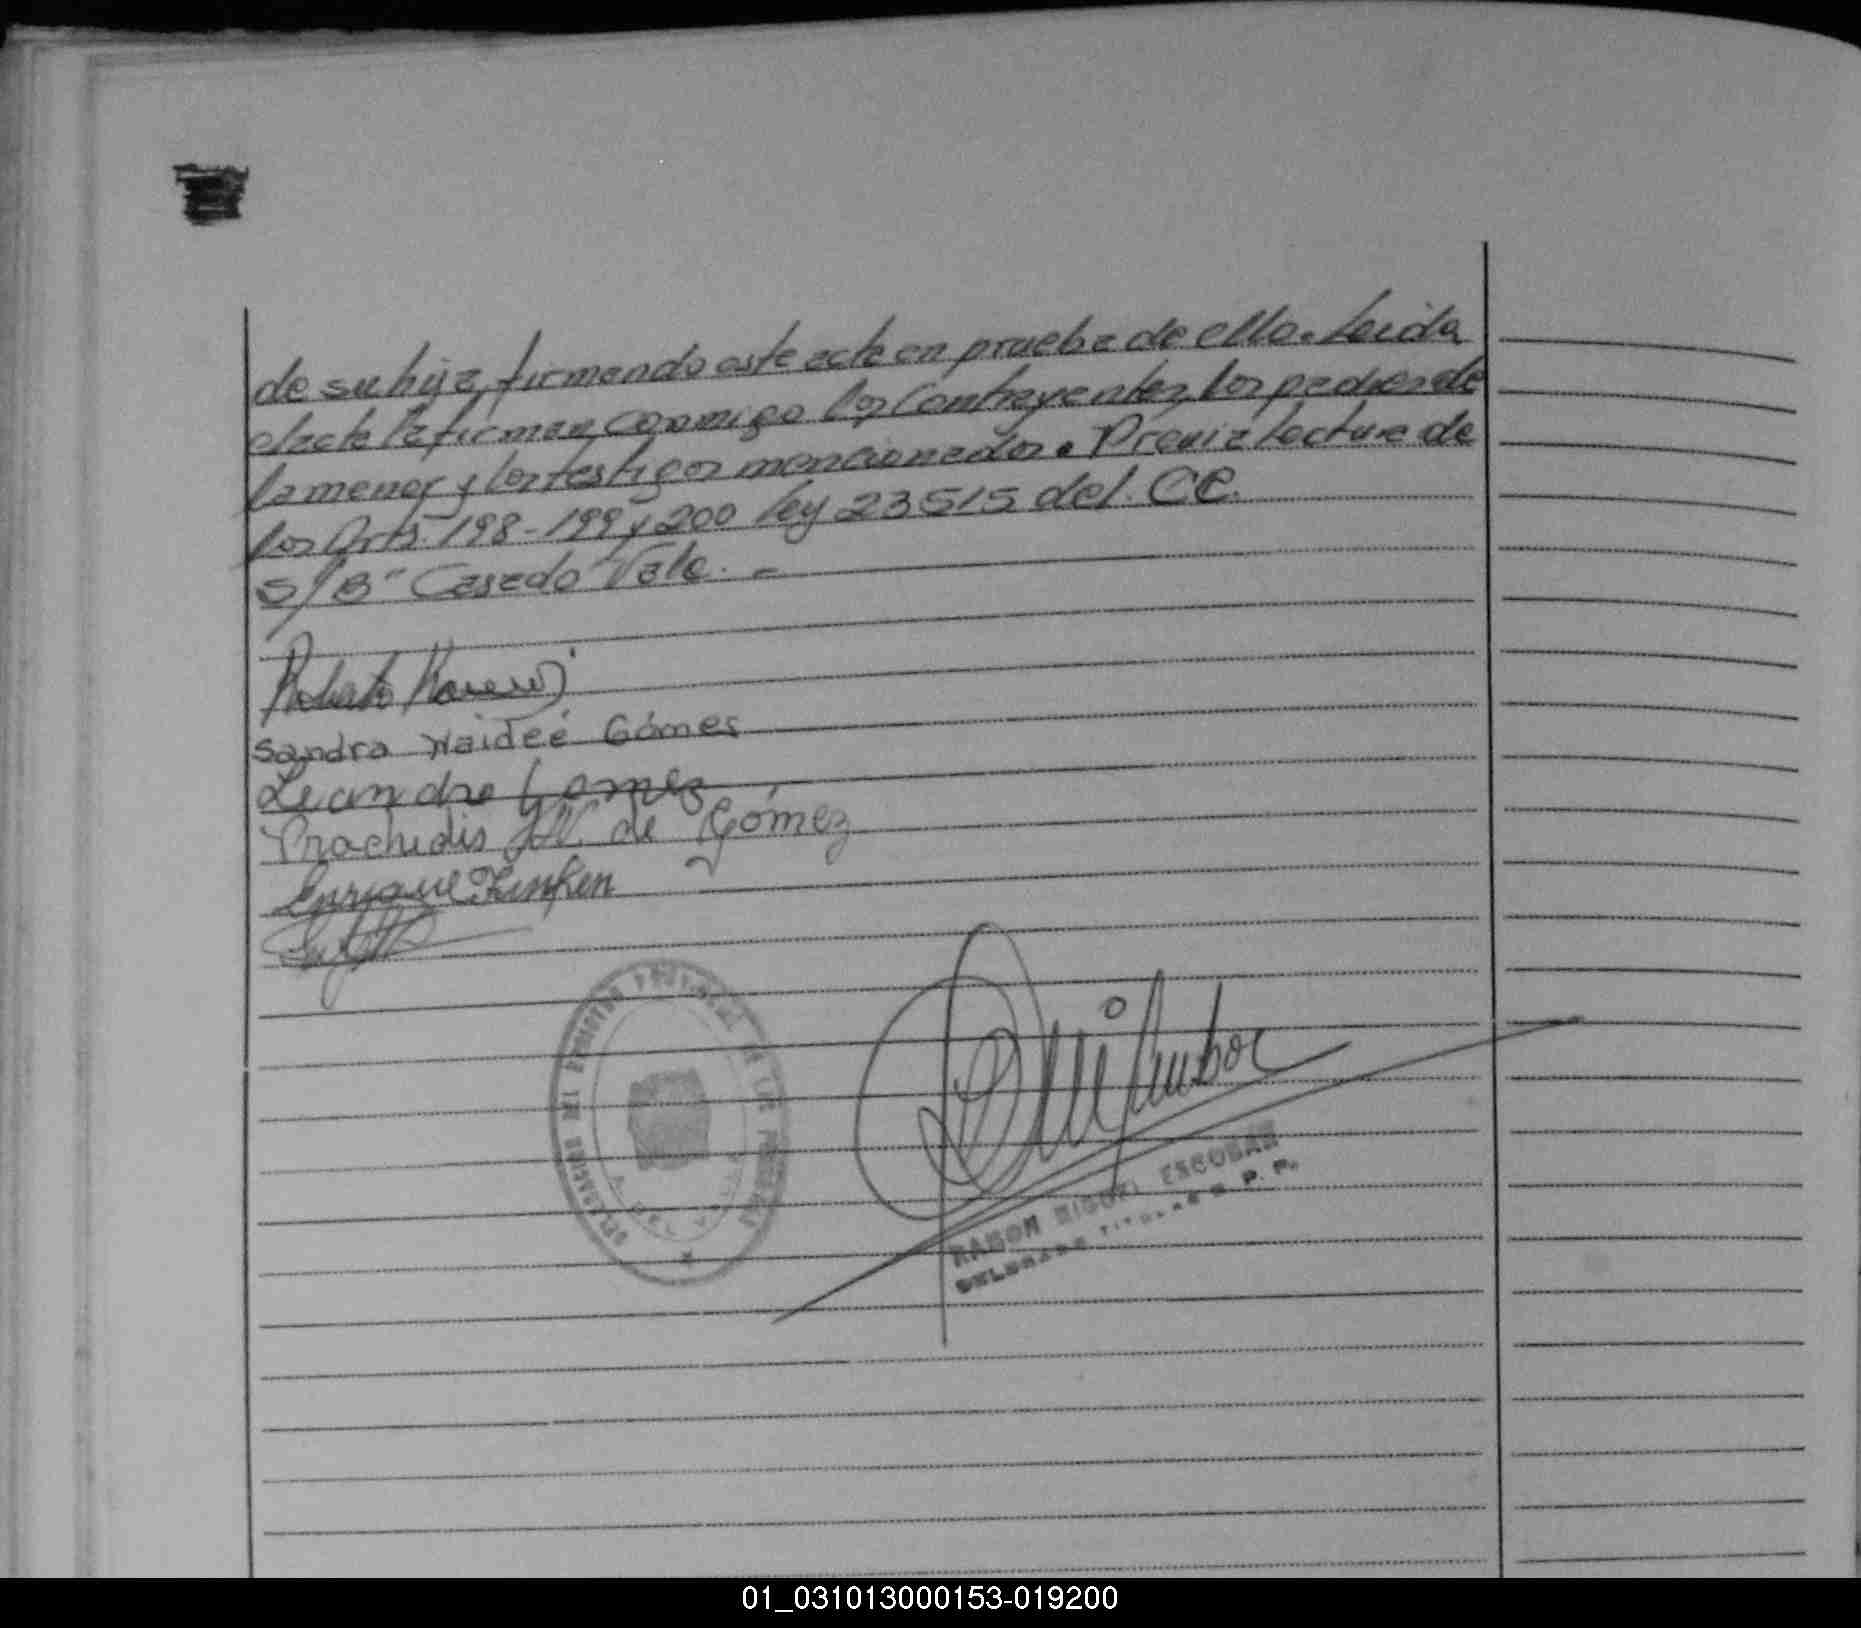 de su hija, firmando este acta en prueba de ello. Leida
el acta la firman conmigo los Contrayentes, los padres de
la menor y los testigos mencionados. Previa Lectura de
los Arts. 198-199 y 200 Ley 23515 del. CC.
S/B" Casado" Vale. =
Roberto
Sandra Haideé Gómes
Leandro Gomez
de Gómez
Enrique
DELEGACION DEL REGISTRO PROVINCIAL DE LAS PERSONAS
RAMON MIGUEL ESCOBAR
DELEGADO TITULAR R. P. P.
01_031013000153-019200